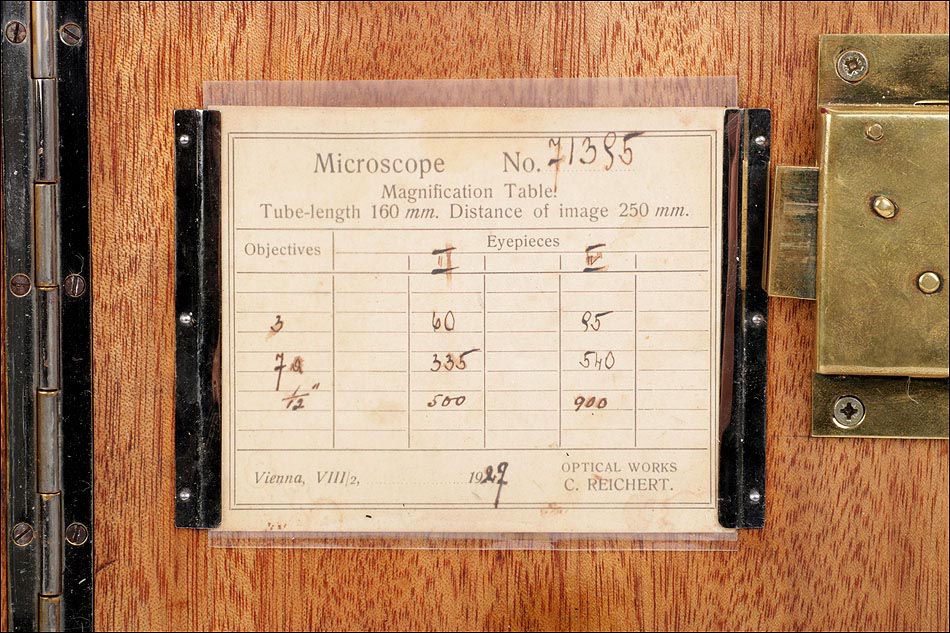 Microscope No. 71395
Magnification Table.
Tube-length 160 mm. Distance of image 250 mm.
Objectives Eyepieces
II IV
3 60 95
7a 335 540
1/12" 500 900
Vienna, VIII/2, 1927
OPTICAL WORKS
C. REICHERT.